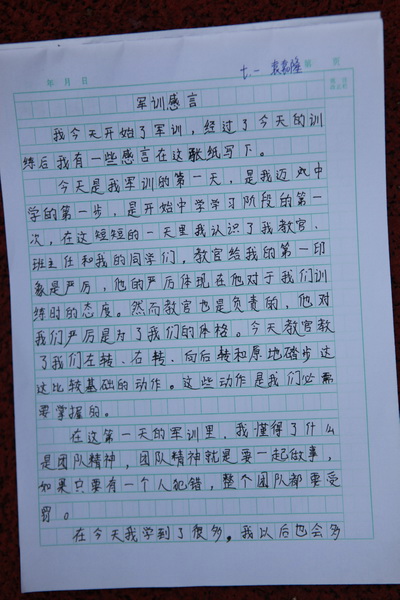 七.一
年 月 日
军训感言
我今天开始了军训，经过了今天的训
练后我有一些感言在这张纸写下。
今天是我军训的第一天，是我迈入中
学的第一步，是开始中学学习阶段的第一
次，在这短短的一天里我认识了我教官、
班主任和我的同学们，教官给我的第一印
象是严厉，他的严厉体现在他对于我们训
练时的态度。然而教官也是负责的，他对
我们严厉是为了我们的体格。今天教官教
了我们左转、右转、向后转和原地踏步这
这比较基础的动作。这些动作是我们必需
要掌握的。
在这第一天的军训里，我懂得了什么
是团队精神，团队精神就是要一起做事，
如果只要有一个人犯错，整个团队都要受
罚。
在今天我学到了很多。我以后也会多